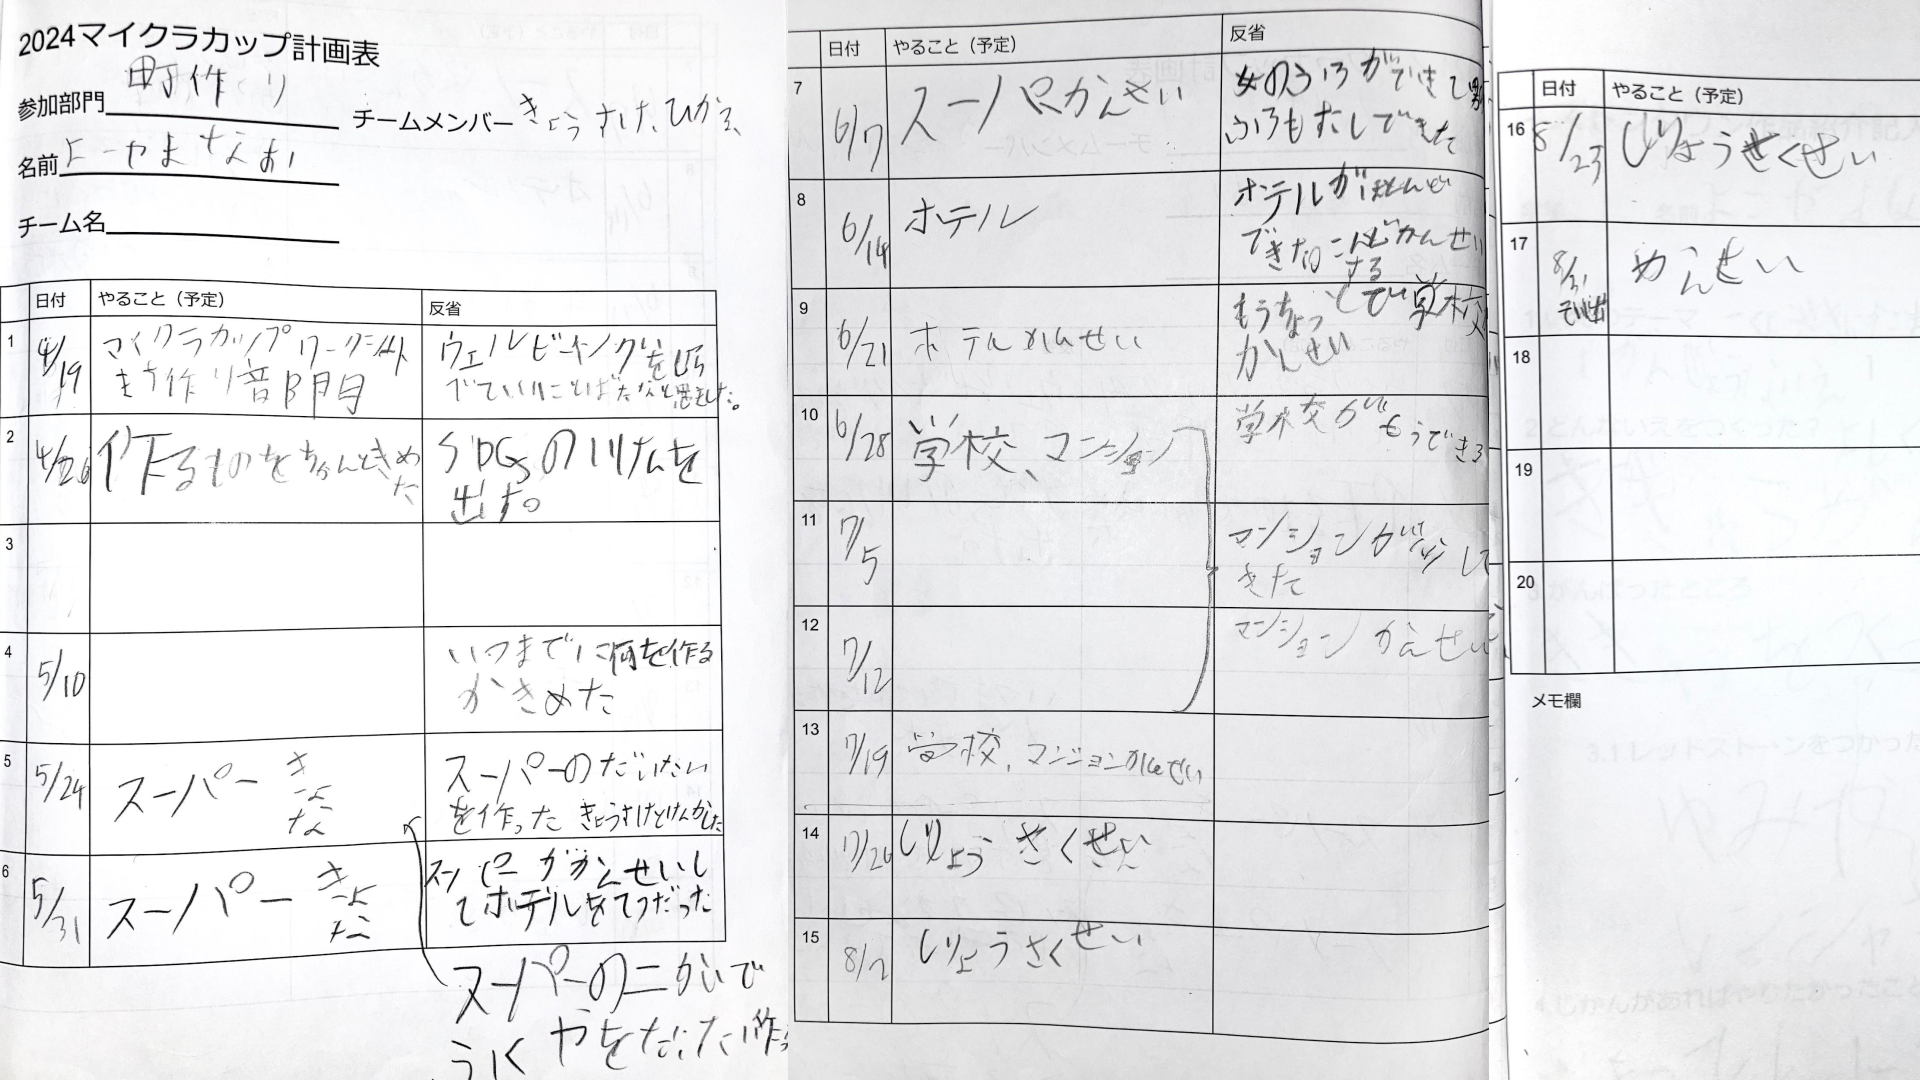 2024マイクラカップ計画表
参加部門 町作り
チームメンバー きょうすけ、ひかる、
名前
チーム名
日付 やること（予定） 反省
1 4/19 マイクラカップ ワークシート
ウェルビーイングを
2 4/26 作るものをちゃんときめ
た
SDGsの
を
出す。
3
4 5/10
いつまでに何を作る
かきめた
5 5/24 スーパー き
な
スーパーのだいたい
を作った きょうすけとけんかした
6 5/31 スーパー きょ
な
スーパーがかんせいし
てホテルをてつだった
スーパーの二かいで
日付 やること（予定） 反省
7 6/7 スーパーかんせい
女のふろができて男
ふろもすこしできた
8 6/14 ホテル
ホテルがほとんど
できた
かんせい
する
9 6/21 ホテルかんせい
もうちょっとで学校
かんせい
10 6/28 学校、マンション
学校がもうできる
11 7/5
マンションが
きた
12 7/12
マンションかんせい
13 7/19 学校、マンションかんせい
14 7/26 しりょうさくせい
15 8/2 しりょうさくせい
日付 やること（予定）
16 8/23 しりょうさくせい
17 8/31 かんせい
ていしゅつ
18
19
20
メモ欄